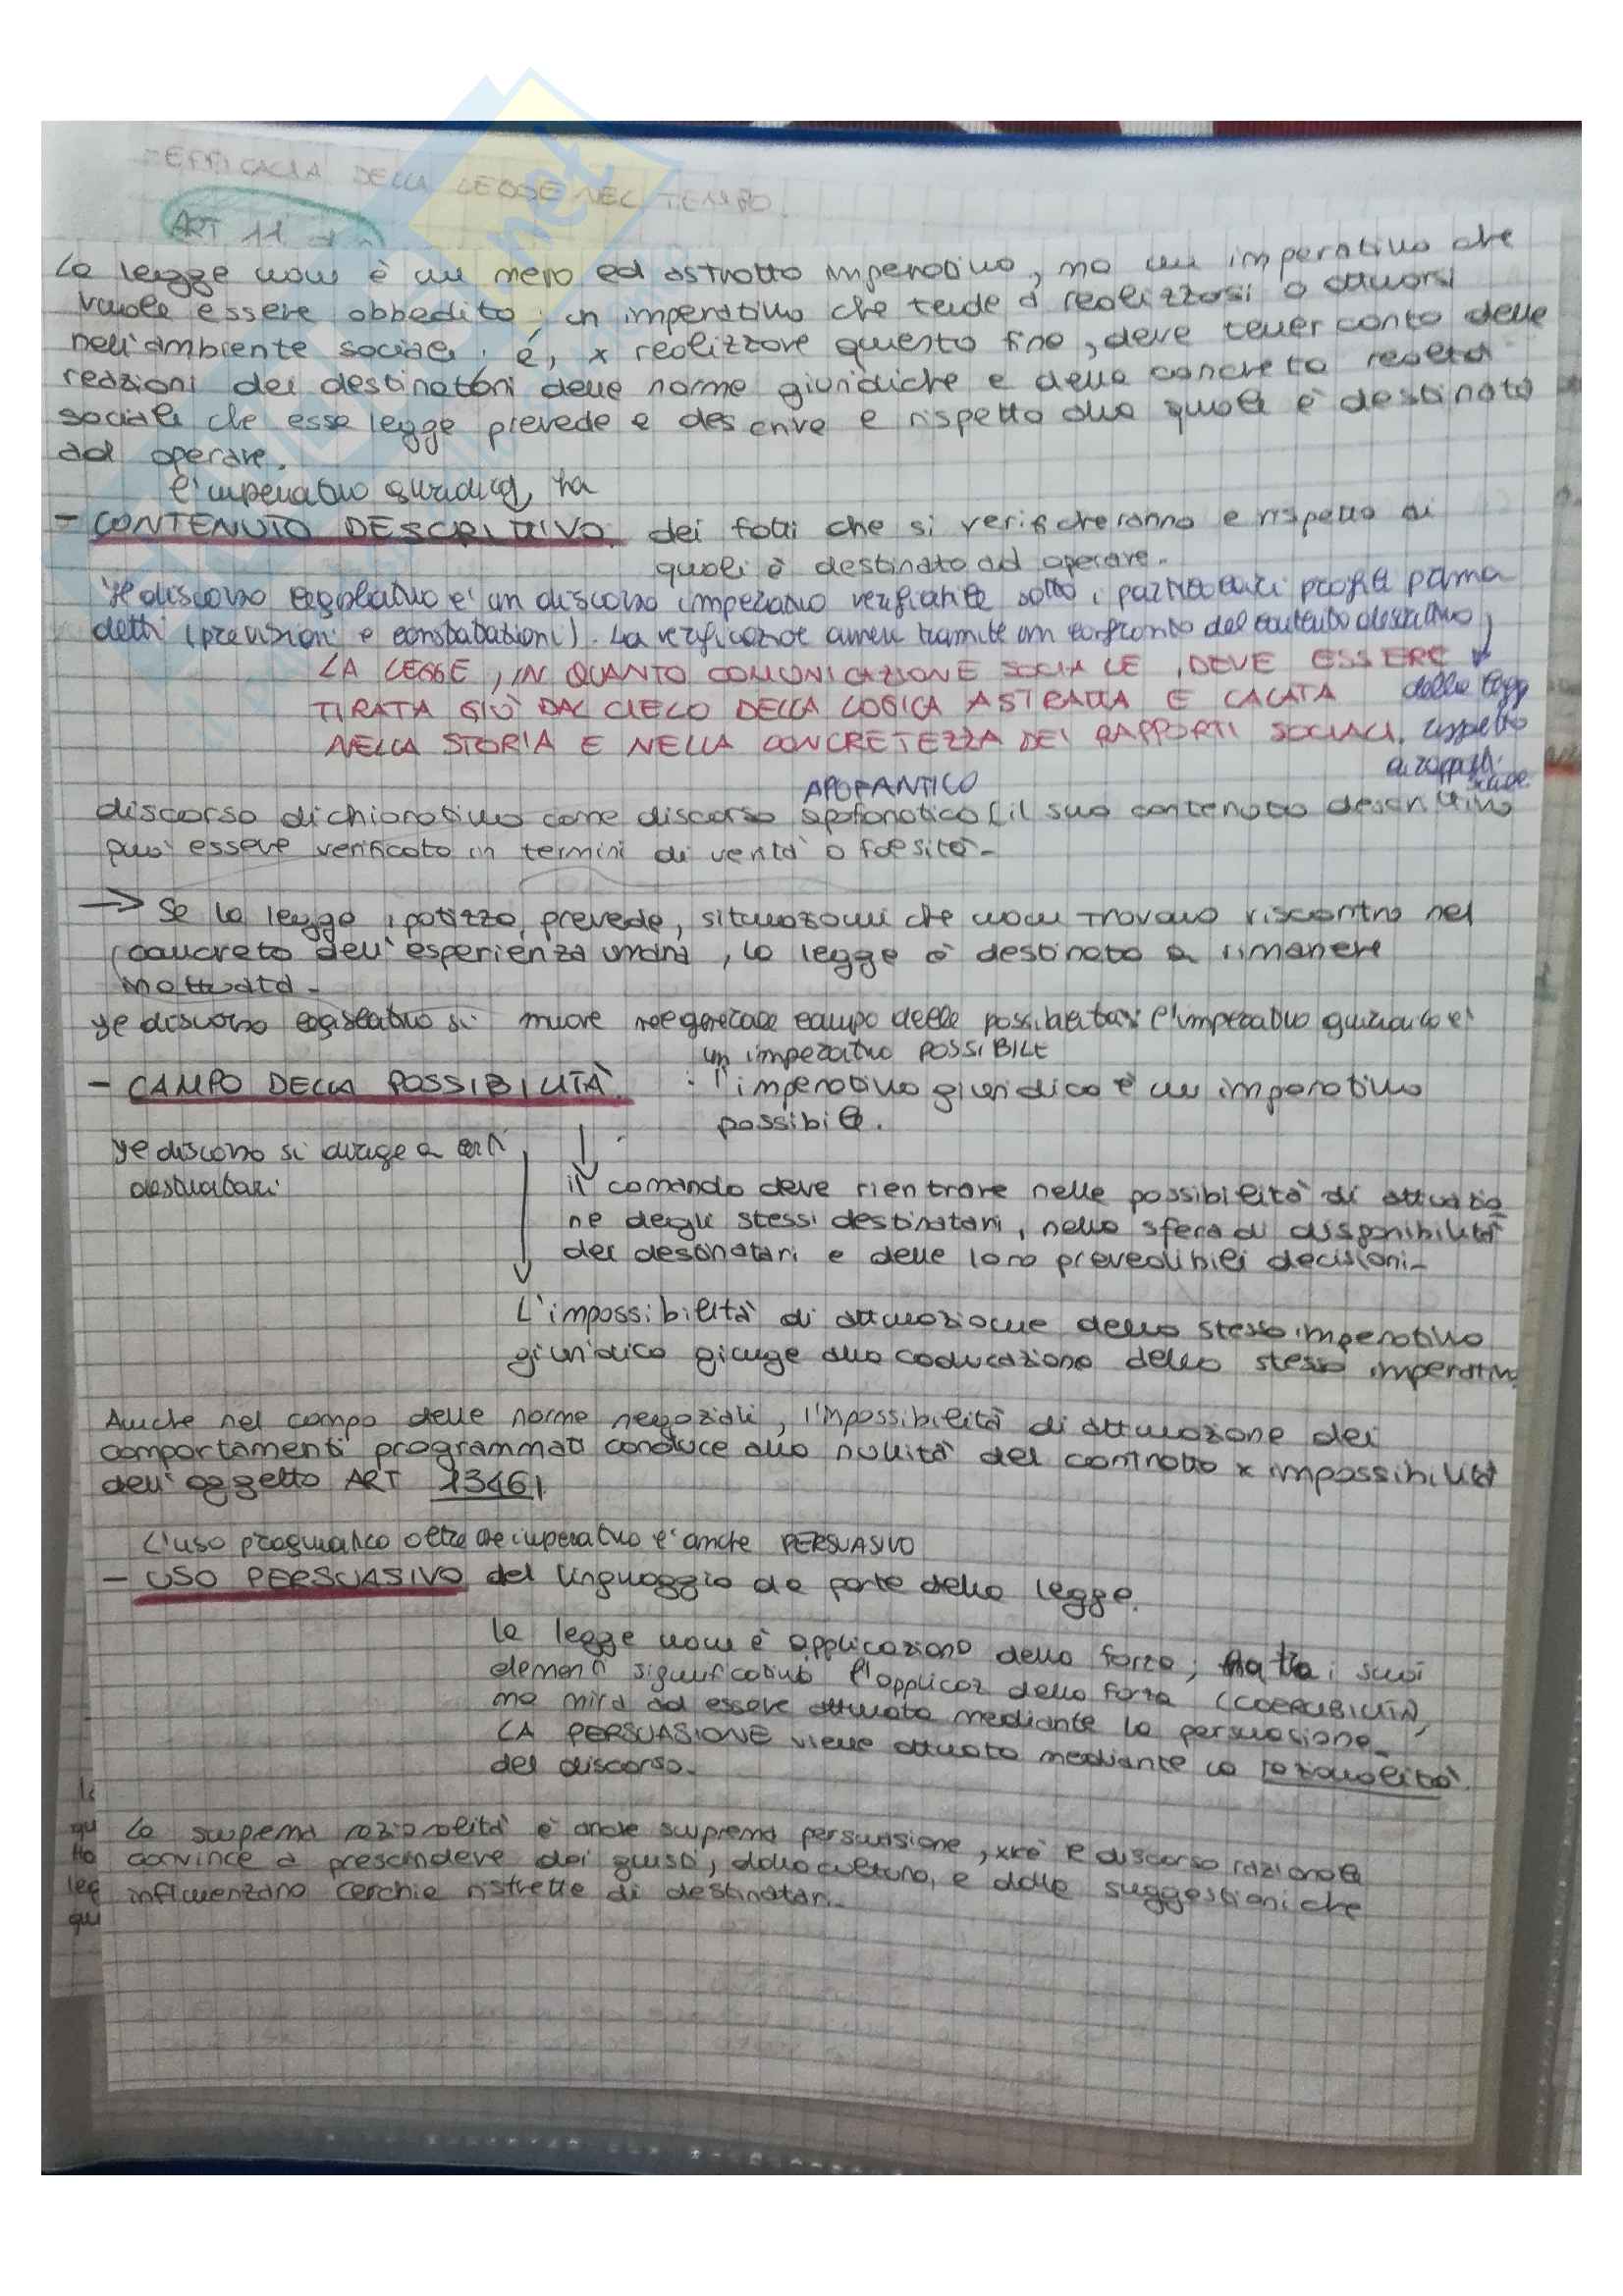 EFFICACIA DELLA LEGGE NEL TEMPO.
ART 11
La legge non è un mero ed astratto imperativo, ma un imperativo che
vuole essere obbedito; un imperativo che tende a realizzarsi o attuarsi
nell'ambiente sociale; e, x realizzare questo fine, deve tener conto delle
reazioni dei destinatari delle norme giuridiche e della concreta realtà
sociale che essa legge prevede e descrive e rispetto alla quale è destinata
ad operare.
l'imperativo giuridico, ha
- CONTENUTO DESCRITTIVO: dei fatti che si verificheranno e rispetto ai
quali è destinato ad operare.
Il discorso legislativo e' un discorso imperativo verificabile sotto i particolari profili prima
detti (previsioni e constatazioni). La verificazione avviene tramite un confronto del contenuto descrittivo
LA LEGGE, IN QUANTO COMUNICAZIONE SOCIALE, DEVE ESSERE
della legge
TIRATA GIÙ DAL CIELO DELLA LOGICA ASTRATTA E CALATA
rispetto
NELLA STORIA E NELLA CONCRETEZZA DEI RAPPORTI SOCIALI.
ai rapporti
sociali
APOFANTICO
discorso dichiarativo come discorso apofonotico (il suo contenuto descrittivo
puo' essere verificato in termini di verità o falsità-
→ Se la legge ipotizza, prevede, situazioni che non trovano riscontro nel
concreto dell'esperienza umana, la legge è destinata a rimanere
inattuata-
Il discorso legislativo si muove nel generale campo delle possibilità: l'imperativo giuridico e'
un imperativo POSSIBILE
- CAMPO DELLA POSSIBILITÀ : l'imperativo giuridico è un imperativo
possibile.
Il discorso si dirige a certi
destinatari
il comando deve rientrare nelle possibilità di attuazio
ne degli stessi destinatari, nella sfera di disponibilità
dei destinatari e delle loro prevedibili decisioni-
L'impossibilità di attuazione dello stesso imperativo
giuridico giunge alla caducazione dello stesso imperativo.
Anche nel campo delle norme negoziali, l'impossibilità di attuazione dei
comportamenti programmati conduce alla nullità del contratto x impossibilità
dell'oggetto ART 1346
L'uso pragmatico oltre che imperativo e' anche PERSUASIVO
- USO PERSUASIVO del linguaggio da parte della legge.
la legge non è applicazione della forza; ha tra i suoi
elementi significativi l'applicaz della forza (COERCIBILITÀ),
ma mira ad essere attuata mediante la persuasione-
LA PERSUASIONE viene attuata mediante la razionalità
del discorso.
La suprema razionalità è anche suprema persuasione, xkè il discorso razionale
convince a prescindere dai gusti, dalla cultura, e dalle suggestioni che
influenzano cerchie ristrette di destinatari-